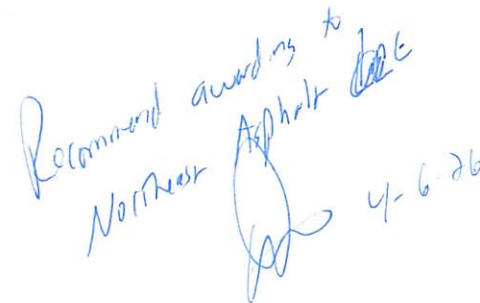 Recommend awarding to
Northeast Asphalt
4-6-26